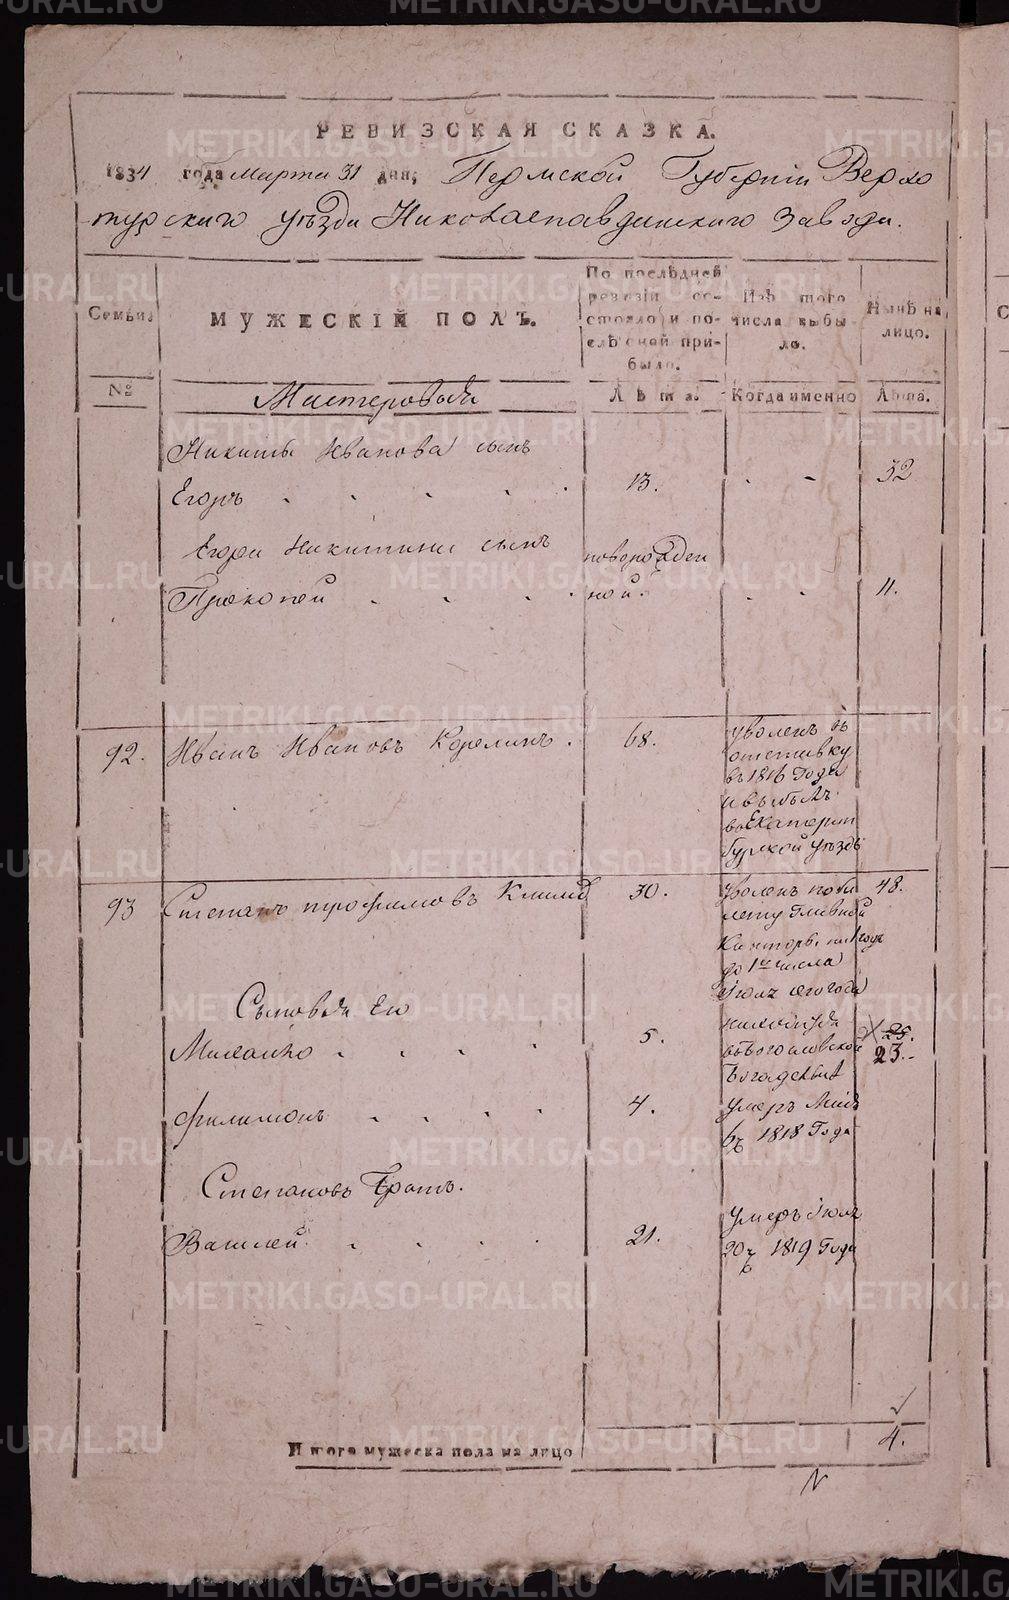 РЕВИЗСКАЯ СКАЗКА.
1834 года марта 31 дня, Пермской Губернiи Верхо
турскаго уѣзда Николаепавдинскаго завода.
Семьи
МУЖЕСКІЙ ПОЛЪ.
По послѣдней
ревизіи со-
стояло и по-
слѣ оной при-
было.
Изъ того
числа выбы-
ло.
Нынѣ на
лицо.
№
Мастеровыя
Лѣта.
Когда именно
Лѣта.
Никиты Иванова сынъ
Егоръ . . . . . 13. - - 32
Егора Никитина сынъ новорожден
Прокопей . . . . ной. . . 11.
92. Иванъ Ивановъ Корелинъ. 68.
уволенъ въ
отставку
въ 1816 Года
и выбылъ
во Екатерин
бургской уѣздъ
93 Степанъ трофимовъ 30. 48.
уволенъ поби
лету Главной
Канторы на 1 годъ
до 1го числа
Іюля сего года
Сыновья Его
Михайло . . . . 5. 25.
23.
находится
въ Богословской
Богадельнѣ
Филимонъ . . . . 4.
умеръ Маія
6ъ 1818 Года
Степановъ Братъ.
Василей . . . . 21.
умеръ Іюля
20 1819 Года
Итого мужеска пола на лицо 4.
METRIKI.GASO-URAL.RU